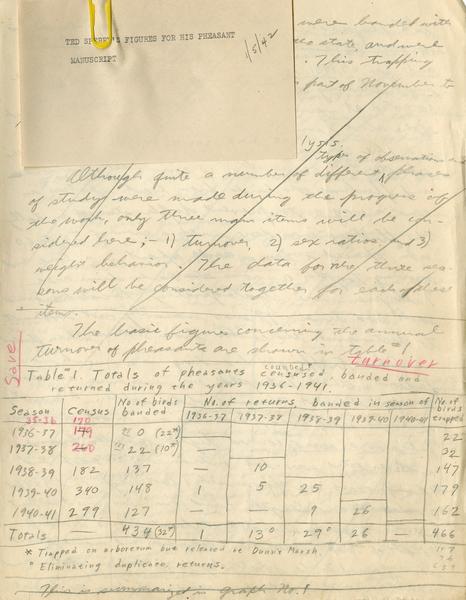 TED SPERRY'S FIGURES FOR HIS PHEASANT
MANUSCRIPT
1/5/42
were banded with
the state, and were
. This trapping
part of November to
lysis.
types of observations and
Although quite a number of different phases
of study were made during the progress of
the work, only three main items will be con-
sidered here; - 1) turnover, 2) sex ratios, and 3)
weight behavior. The data for the three sea-
sons will be considered together for each of these
items.
Save
The basic figures concerning the annual
turnover of pheasants are shown in table #1
turnover
Table #1. Totals of pheasants counted censused, banded and
returned during the years 1936-1941.
Season Census No of birds banded No. of returns banded in season of No. of birds trapped
1936-37 1937-38 1938-39 1939-40 1940-41
35-36 170
1936-37 149 0 (22*) 22
1937-38 260 22 (10*) — 32
1938-39 182 137 — 10 147
1939-40 340 148 1 5 25 179
1940-41 279 127 — 9 26 162
Totals — 434 (32*) 1 13° 29° 26 — 466
* Trapped on arboretum but released at Dunn's Marsh.
° Eliminating duplicate returns.
This is summarized in Graph No. 1